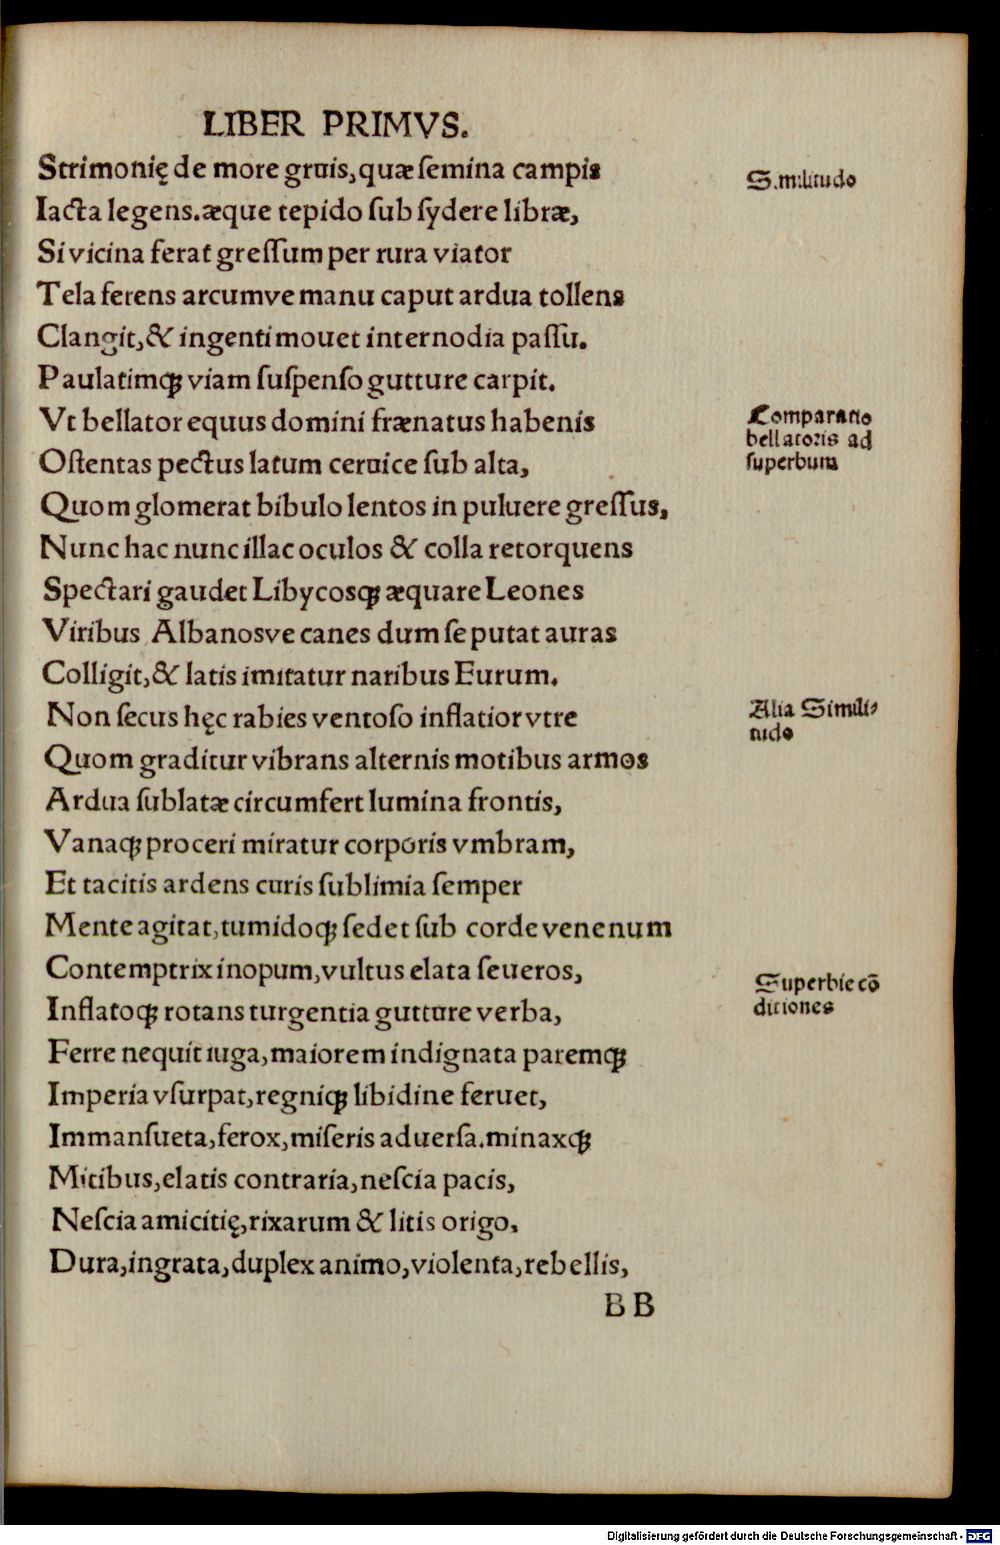 LIBER PRIMVS.
Strimonię de more gruis,quæ ſemina campis
Similitudo
Iacta legens.æque tepido ſub ſydere libræ,
Si vicina ferat greſſum per rura viator
Tela ferens arcumve manu caput ardua tollens
Clangit,& ingenti mouet internodia paſſu.
Paulatimqꝫ viam ſuſpenſo gutture carpit.
Vt bellator equus domini frænatus habenis
Comparatio
bellatoris ad
ſuperbum
Oſtentas pectus latum ceruice ſub alta,
Quom glomerat bibulo lentos in puluere greſſus,
Nunc hac nunc illac oculos & colla retorquens
Spectari gaudet Libycosqꝫ æquare Leones
Viribus Albanosve canes dum ſe putat auras
Colligit,& latis imitatur naribus Eurum.
Non ſecus hęc rabies ventoſo inflatior vtre
Alia Simili⸗
tudo
Quom graditur vibrans alternis motibus armos
Ardua ſublatæ circumfert lumina frontis,
Vanaqꝫ proceri miratur corporis vmbram,
Et tacitis ardens curis ſublimia ſemper
Mente agitat,tumidoqꝫ ſedet ſub corde venenum
Contemptrix inopum,vultus elata ſeueros,
Superbie cõ
ditiones
Inflatoqꝫ rotans turgentia gutture verba,
Ferre nequit iuga,maiorem indignata paremqꝫ
Imperia vſurpat,regniqꝫ libidine feruet,
Immanſueta,ferox,miſeris aduerſa.minaxqꝫ
Mitibus,elatis contraria,neſcia pacis,
Neſcia amicitię,rixarum & litis origo,
Dura,ingrata,duplex animo,violenta,rebellis,
BB
Digitalisierung gefördert durch die Deutsche Forschungsgemeinschaft - DFG